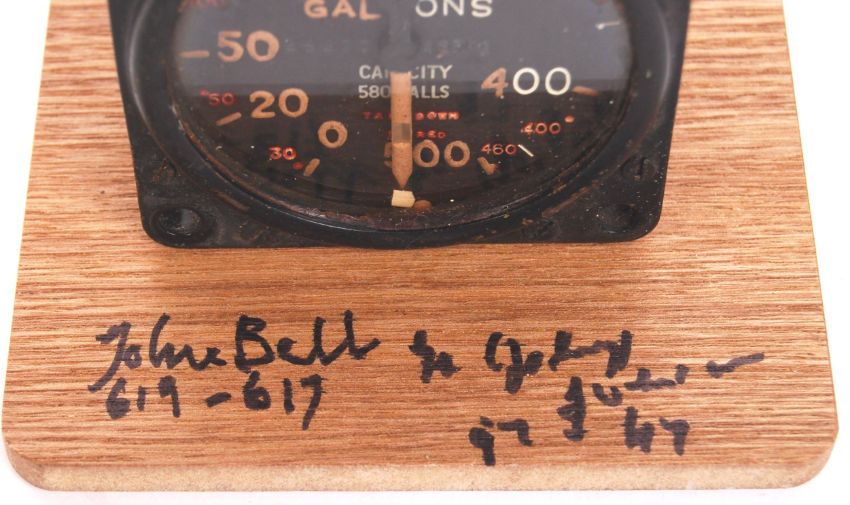 GALLONS
50
CAPACITY
400
580 GALLS
50
20
TAIL DOWN
0
400
30
500
460
John Bell
619-617
97